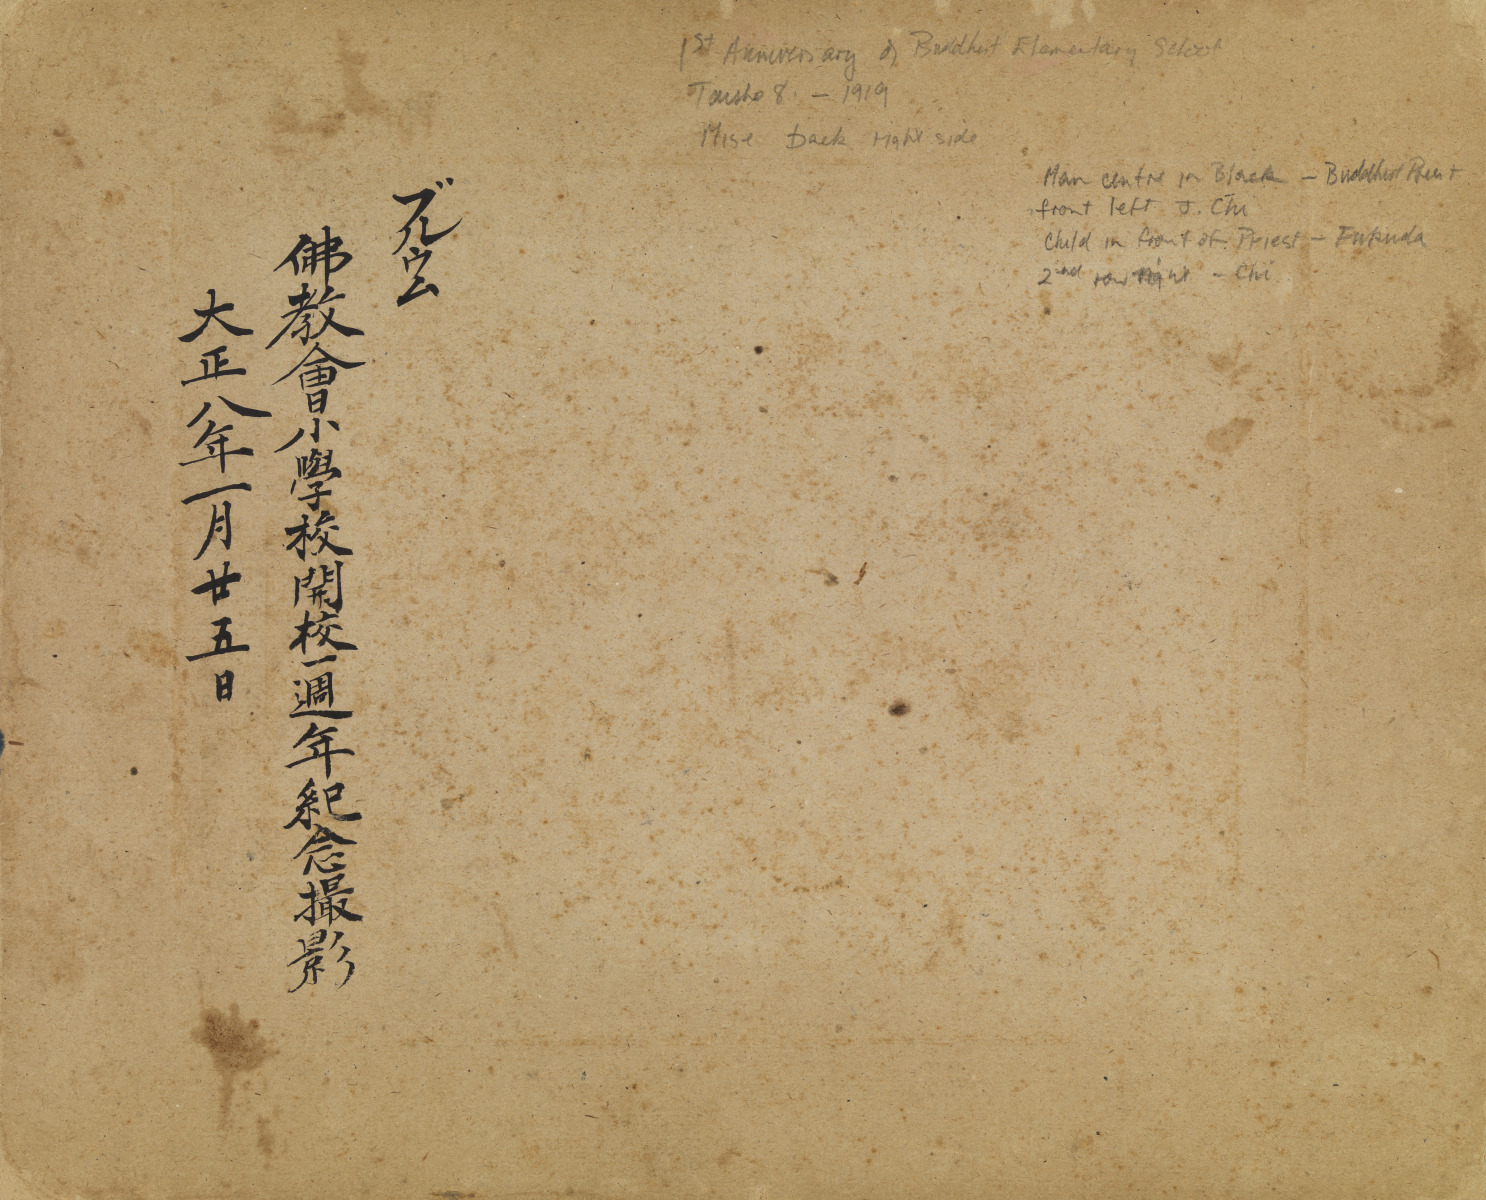 1st Anniversary of Buddhist Elementary School
Taisho 8. - 1919
back right side
Man centre in Black - Buddhist Priest
front left J. Chi
Child in front of Priest - Fukuda
2nd row right - Chi
ブルウム
佛教會小學校開校一週年紀念撮影
大正八年一月廿五日